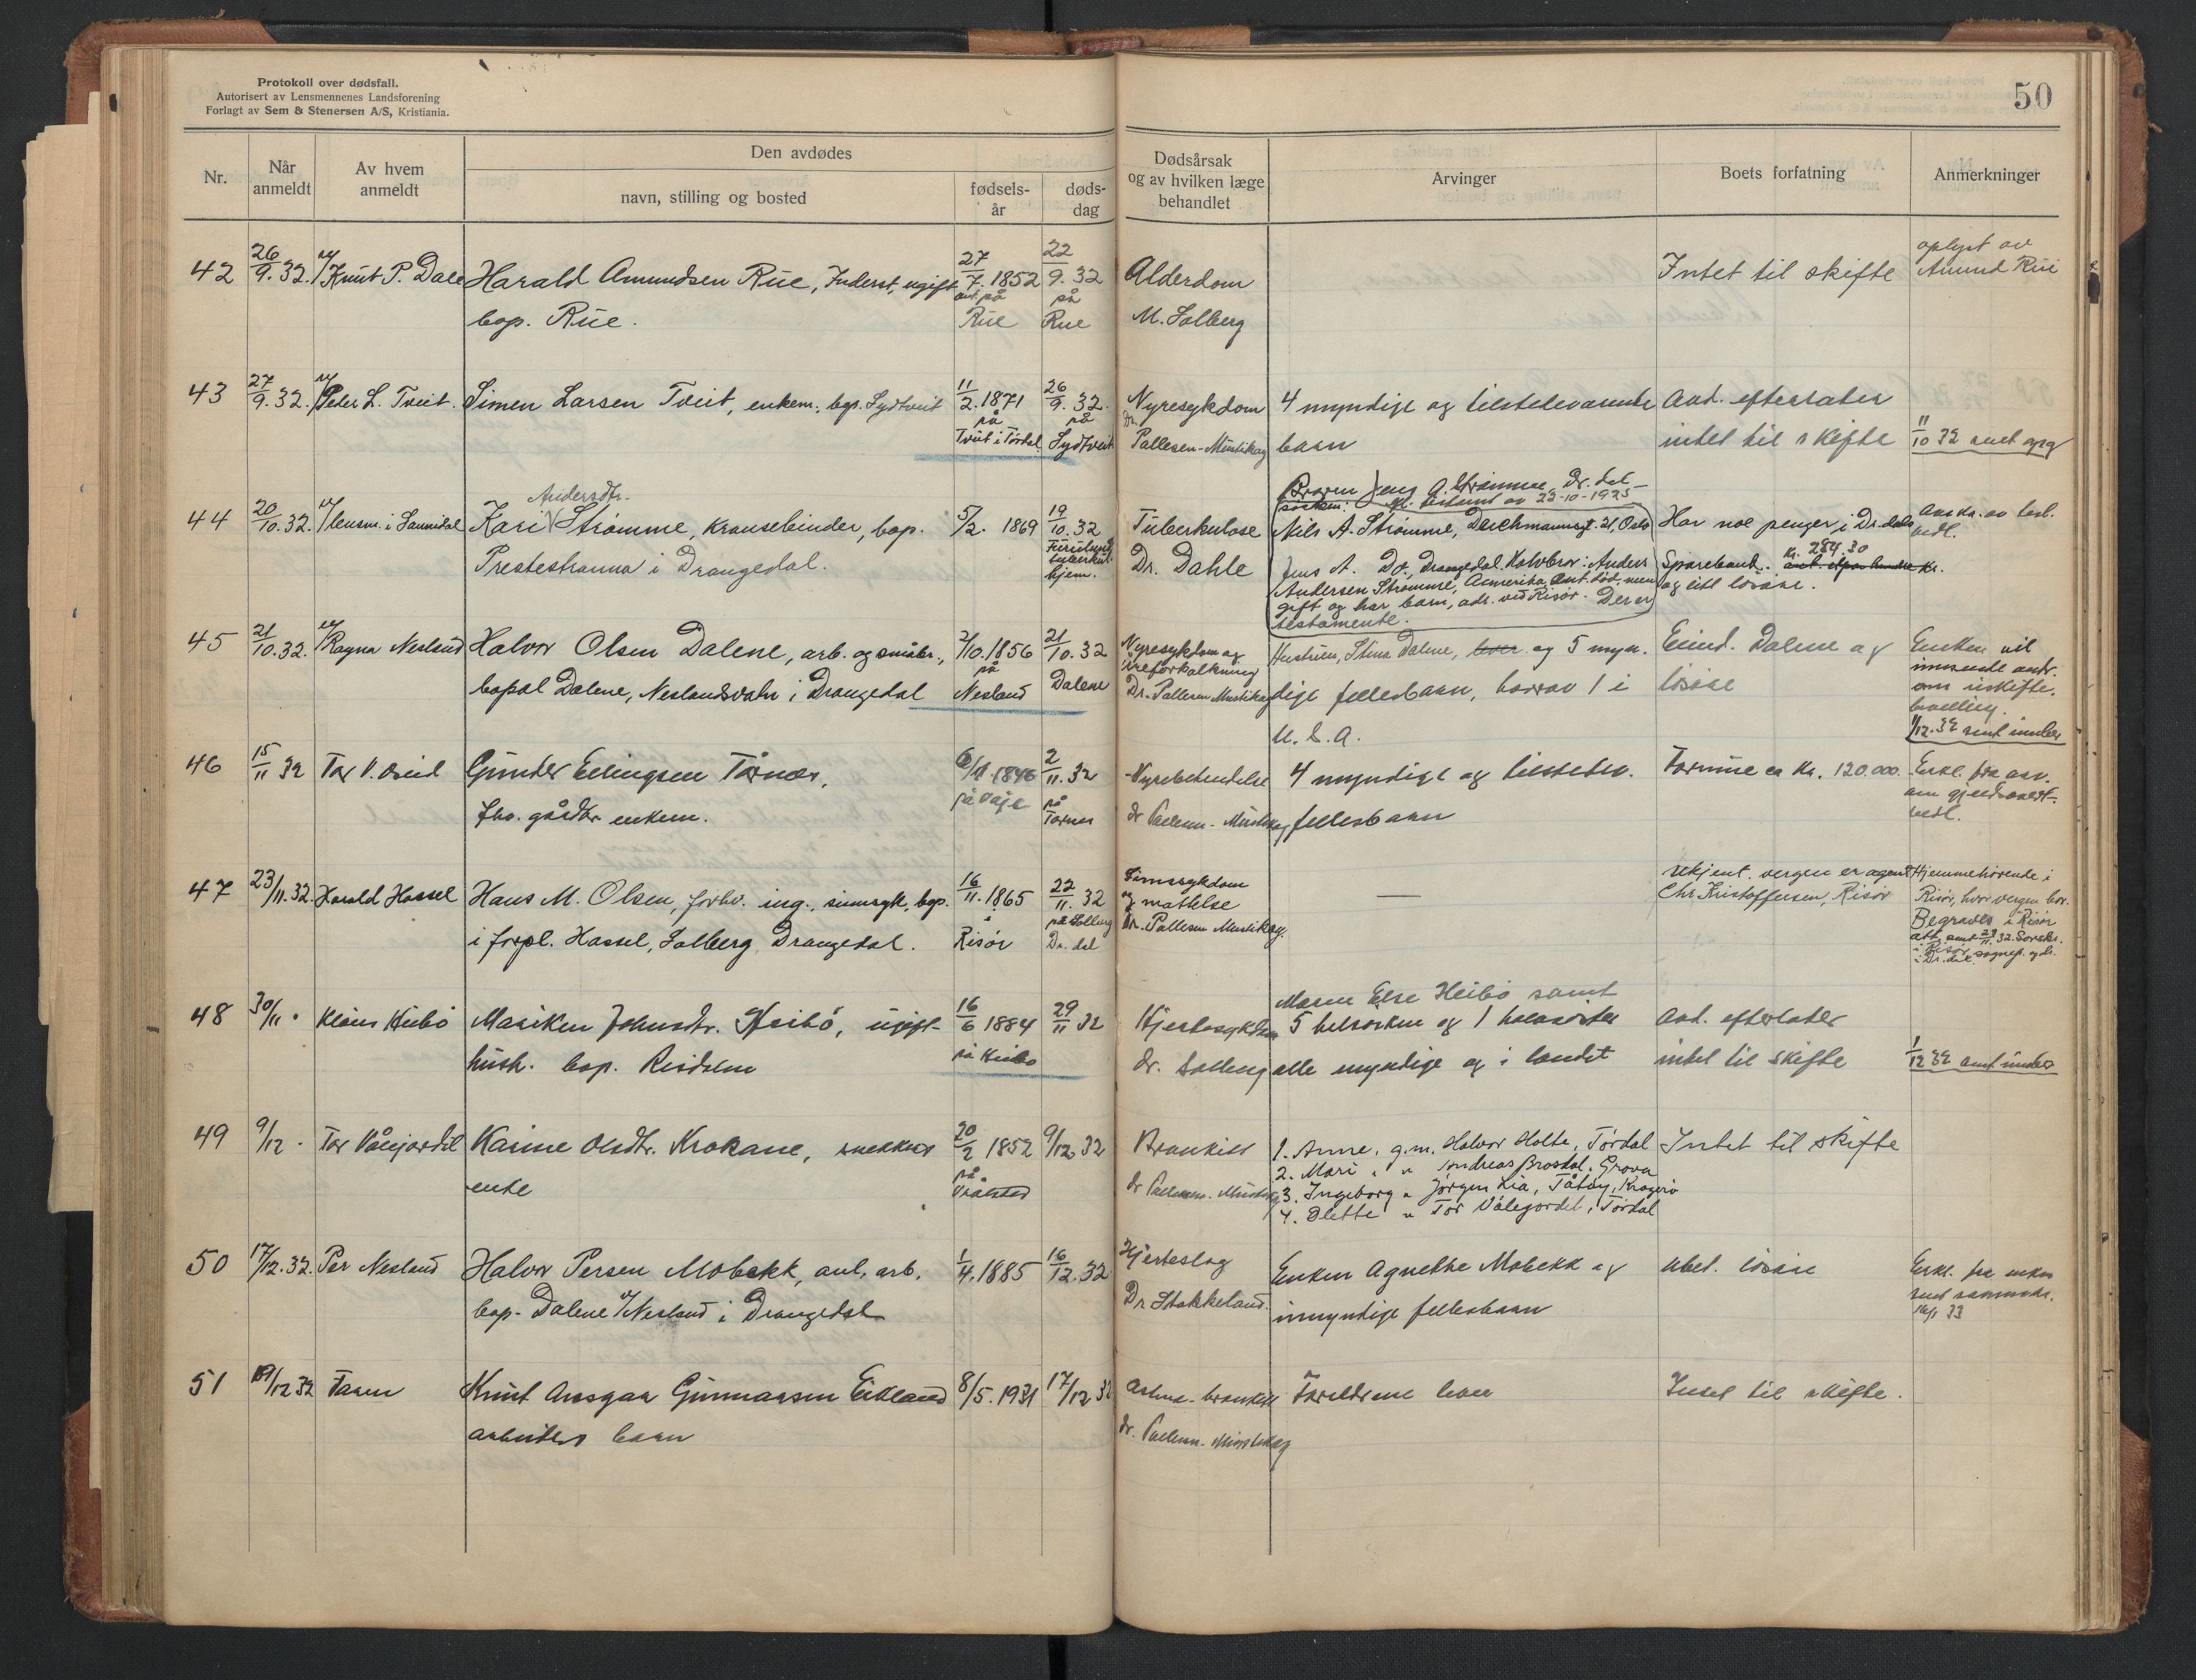 Protokoll over dødsfall.
Autorisert av Lensmennenes Landsforening
Forlagt av Sem & Stenersen A/S, Kristiania.
50
Nr.
Når anmeldt
Av hvem anmeldt
Den avdødes
navn, stilling og bosted
fødsels-år
døds-dag
Dødsårsak og av hvilken læge behandlet
Arvinger
Boets forfatning
Anmerkninger
42 26/9.32. v/Knut P. Dale Harald Amundsen Rue, Inderst, ugift 27/7.1852 22/9.32 Alderdom Intet til skifte oplyst av
bop. Rue. på Rue på Rue M. Solberg Amund Rue
43 27/9.32. v/Peder L. Tveit. Simen Larsen Tveit, enkem., bop. Sydtveit 11/2.1871 26/9.32. Nyresykdom 4 myndige og tilstedeværende Avd. efterlater
på Tveit i Tørdal på Sydtveit Dr. Pallesen-Mustikay barn intet til skifte 11/10 32 sendt opg
Andersdtr.
Broren Jens A. Strømme, Dr.dal
testament av 23-10-1925
44 20/10.32. v/lensm. i Sannidal Kari Strømme, kransebinder, bop. 5/2. 1869 19/10.32 Tuberkulose Nils A. Strømme, Deichmannsgt. 21, Oslo Har noe penger i Dr.dals
Prestestranna i Drangedal. Furulund tuberkul. hjem. Dr. Dahle Jens A. Do, Drangedal. Halvbror: Anders Sparebank. kr. 284.30
Andersen Strømme, Amerika, ant. død, men og litt løsøre.
gift og har barn, adr. ved Risør. Der er
testamente.
45 21/10.32. v/Ragna Nesland Halvor Olsen Dalene, arb. og småbr., 2/10.1856 21/10.32 Nyresykdom og åreforkalkning Hustruen, Stina Dalene, lever og 5 myn- Eiend. Dalene og Enken vil
bopæl Dalene, Neslandsvatn i Drangedal på Nesland Dalene Dr. Pallesen Mustikay dige fellesbarn, hvorav 1 i løsøre innsende andr.
U. S. A. om uskifte.
bevilling.
1/12.32 sendt innber
46 15/11 32 Tor V. Øseid Gunder Ellingsen Tårnes, 6/11.1846 2/11.32 Nyrebetendelse 4 myndige og tilstedev. Formue ca kr. 120.000. Erkl. fra arv.
fhv. gårdbr. enkem. på Våje på Tornes dr Pallesen-Mustikay fellesbarn om gjeldsovert.
vedl.
47 23/11.32. Harald Hassel Hans M. Olsen, forhv. ing., sinnsyk, bop. 16/11.1865 22/11.32 Sinnssykdom og mathet — ukjent. vergen er agent Hjemmehørende i
i forpl. Hassel, Solberg, Drangedal. Risør på Solberg Dr.dal Dr. Pallesen Mustikay. Chr. Kristoffersen, Risør Risør, hvor vergen bor.
Begraves i Risør
48 30/11 Klaus Heibø Mariken Johnsdtr. Heibø, ugift 16/6 1884 29/11 32 Hjertesykdom Moren Else Heibø samt
5 helsøsken og 1 halvsøster Avd. efterlater
hush. bop. Risdalen på Heibø dr. Solberg alle myndige og i landet intet til skifte 1/12 32 sendt innber
49 9/12 Tor Vålejordet Karine Olsdtr. Krokane, snekkers 20/2 1852 9/12 32 Bronkitt 1. Anne, g.m. Halvor Holte, Tørdal Intet til skifte
enke på dr Pallesen-Mustikay 2. Mari " " Andreas Brosdal, Grova
3. Ingeborg " Jørgen Lia, Tåtøy, Kragerø
4. Olette " Tor Vålejordet, Tørdal
50 17/12.32. Per Nesland Halvor Persen Mobekk, anl. arb. 1/4.1885 16/12.32 Hjerteslag Enken Agnethe Mobekk og ubet. løsøre Erkl. fra enken
bop. Dalene v/Nesland i Drangedal Dr. Stokkeland. umyndige fellesbarn
51 19/12 32 Faren Knut Ansgar Gunnarsen Eikland 8/5.1931 17/12 32 Astma-bronkitt Foreldrene lever Intet til skifte.
arbeiders barn dr. Pallesen-Mustikay